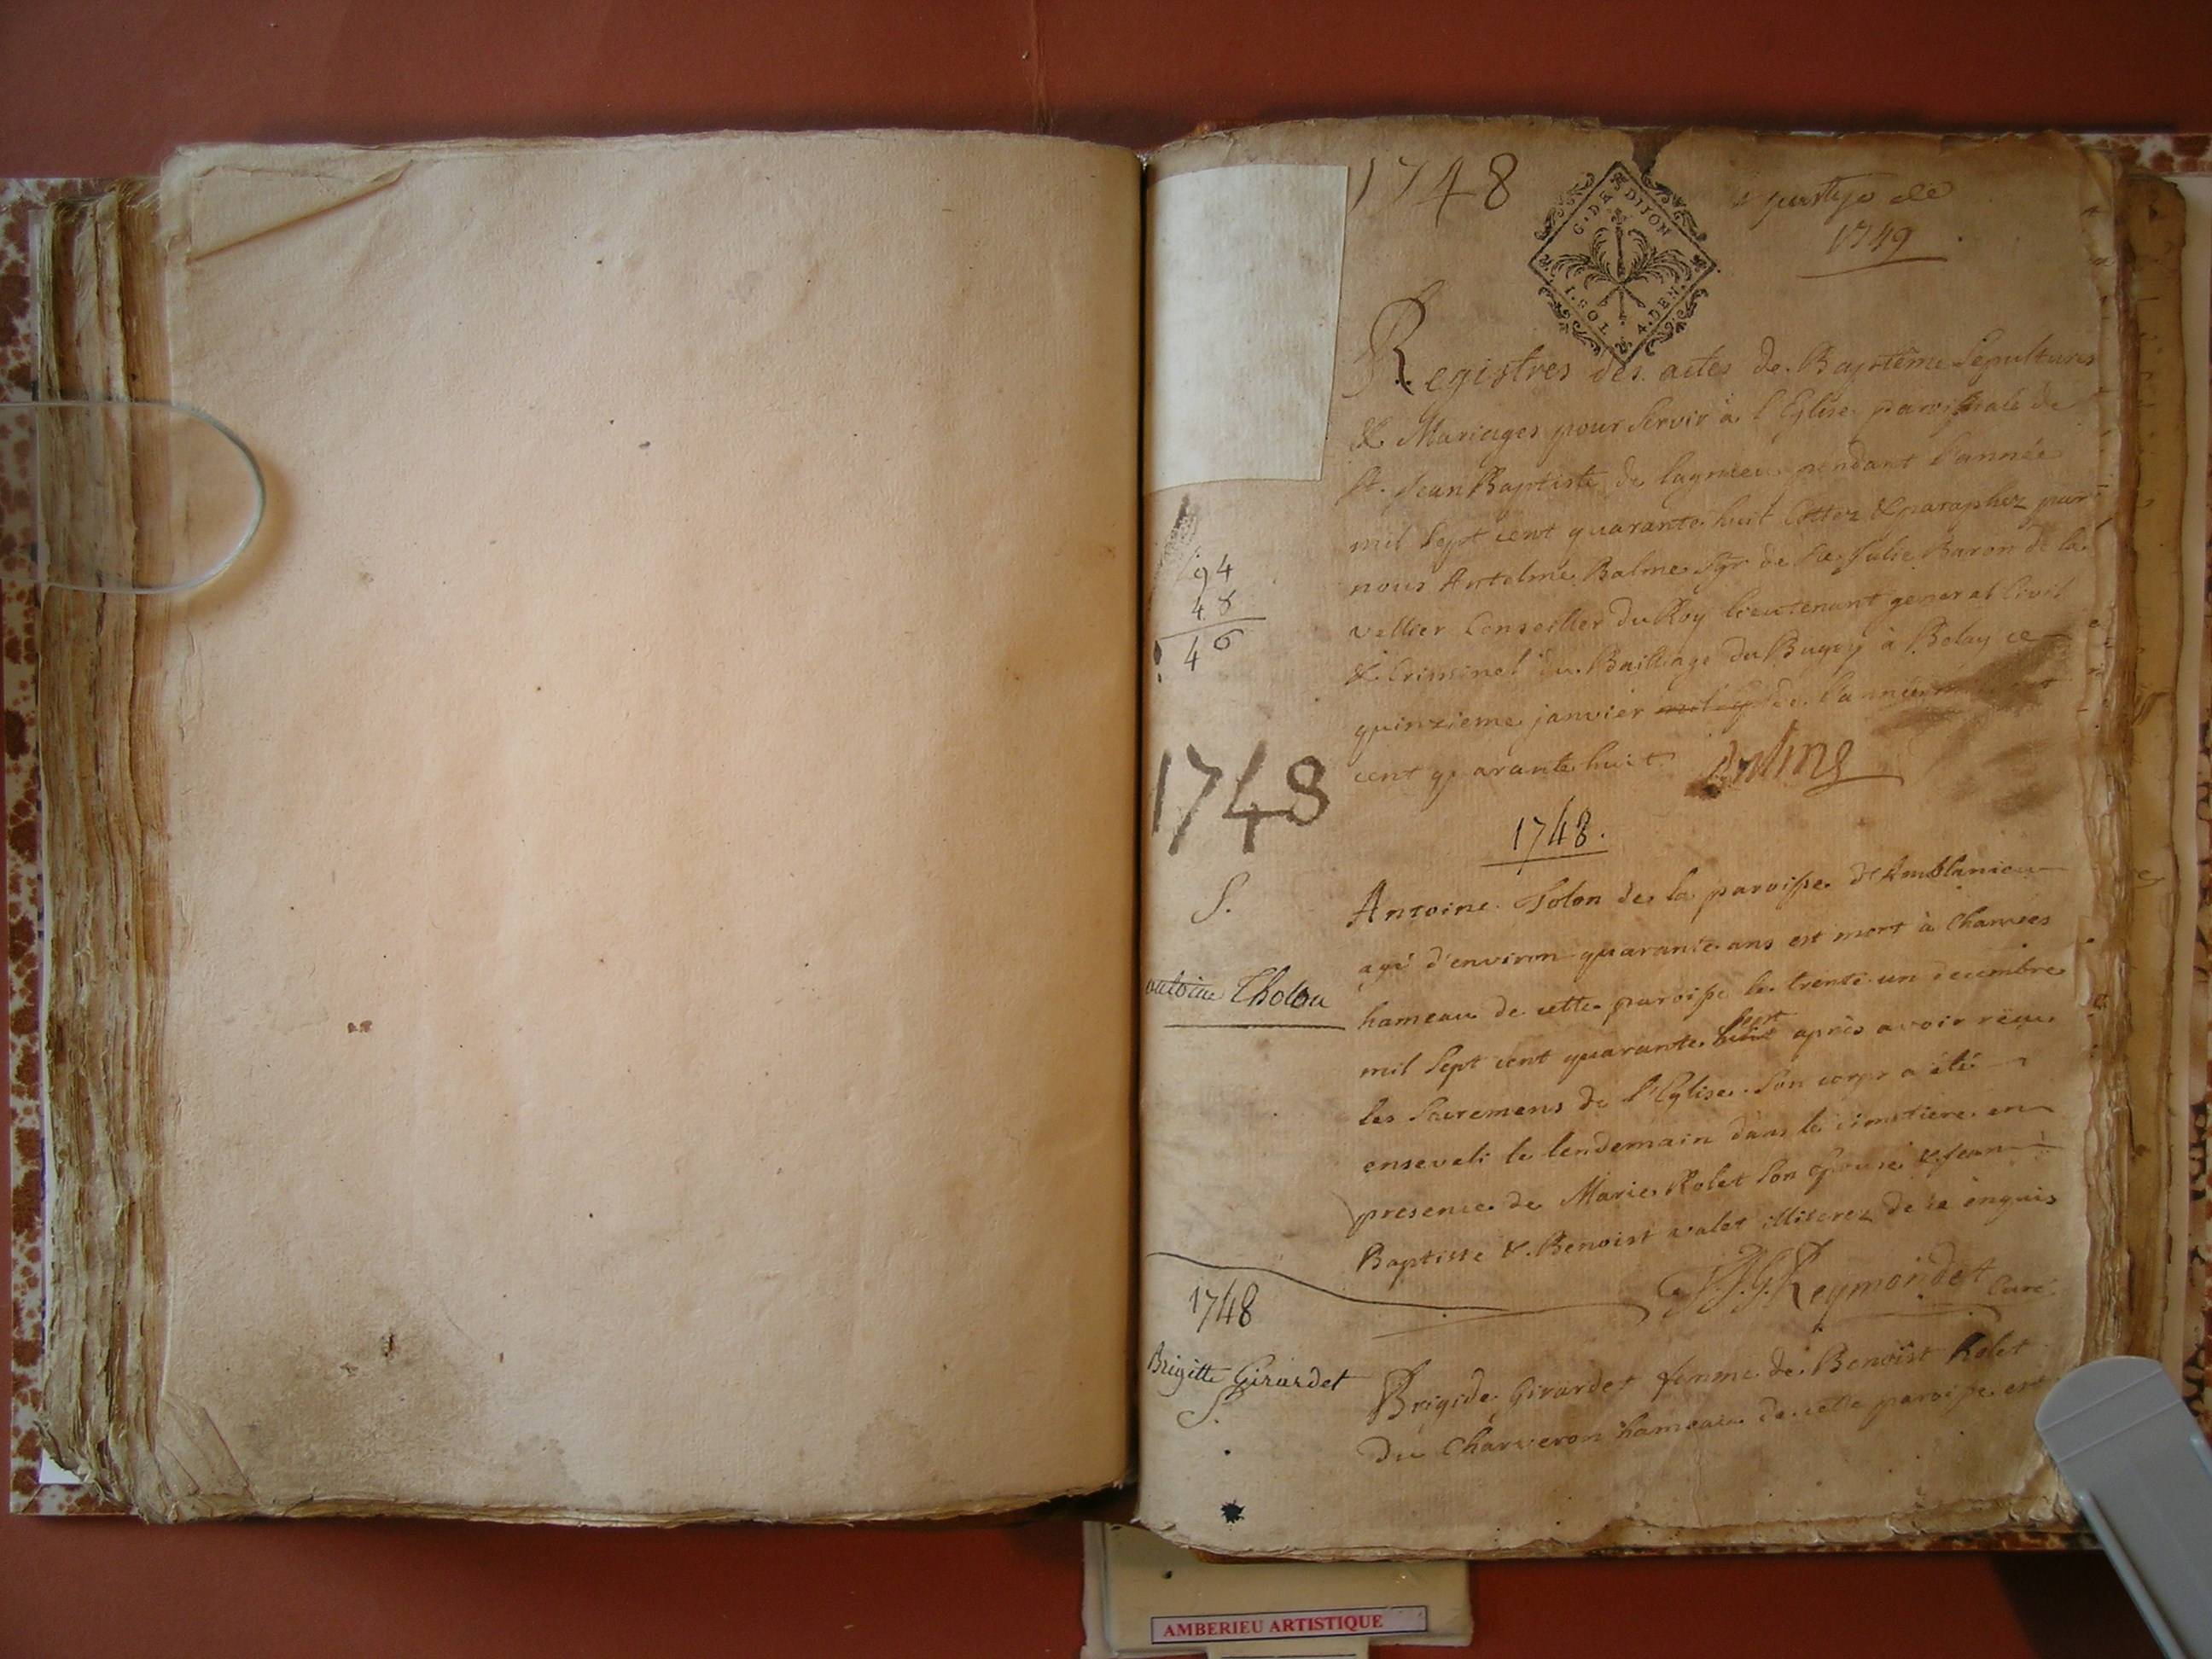 1748
G. DE DIJON
1. SOL 4. DEN.
de
1749
Registres des actes de Baptême Sepultures
& Mariages pour servir à l'Eglise paroissiale de
St. Jean Baptiste de lagnieu pendant l'année
mil sept cent quarante huit Cottez & paraphez par
nous Antelme Balme Sgr de Ste Julie Baron de la
vellier Conseiller du Roy lieutenant general Civil
& Criminel du Bailliage du Bugey à Belay ce
quinzieme janvier de l'année
cent quarante huit Balme
94
48
46
1748
1748.
S.
antoine Tholon
Antoine Tolon de la paroisse d'Amblanieu
agé d'environ quarante ans est mort à Charvées
hameau de cette paroisse le trente un decembre
mil sept cent quarante sept après avoir reçu
les Sacremens de l'Eglise. Son corps a été
enseveli le lendemain dans le cimetiere en
presence de Marie Rolet son epouse & Jean
Baptiste & Benoist valet illiterez de ce enquis
Reymondet Curé
1748
Brigitte Girardet
S.
Brigide Girardet femme de Benoist Rolet
du Charveron hameau de cette paroisse est
AMBERIEU ARTISTIQUE